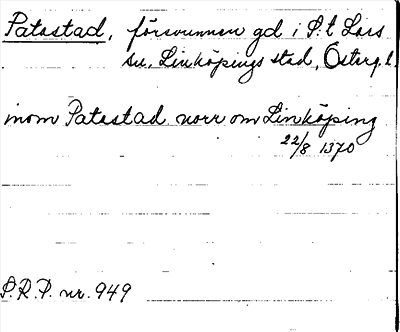 Patastad, försvunnen gd i S:t Lars
sn, Linköpings stad, Österg. l.
inom Patastad norr om Linköping
22/8 1370
S.R.P. nr. 949